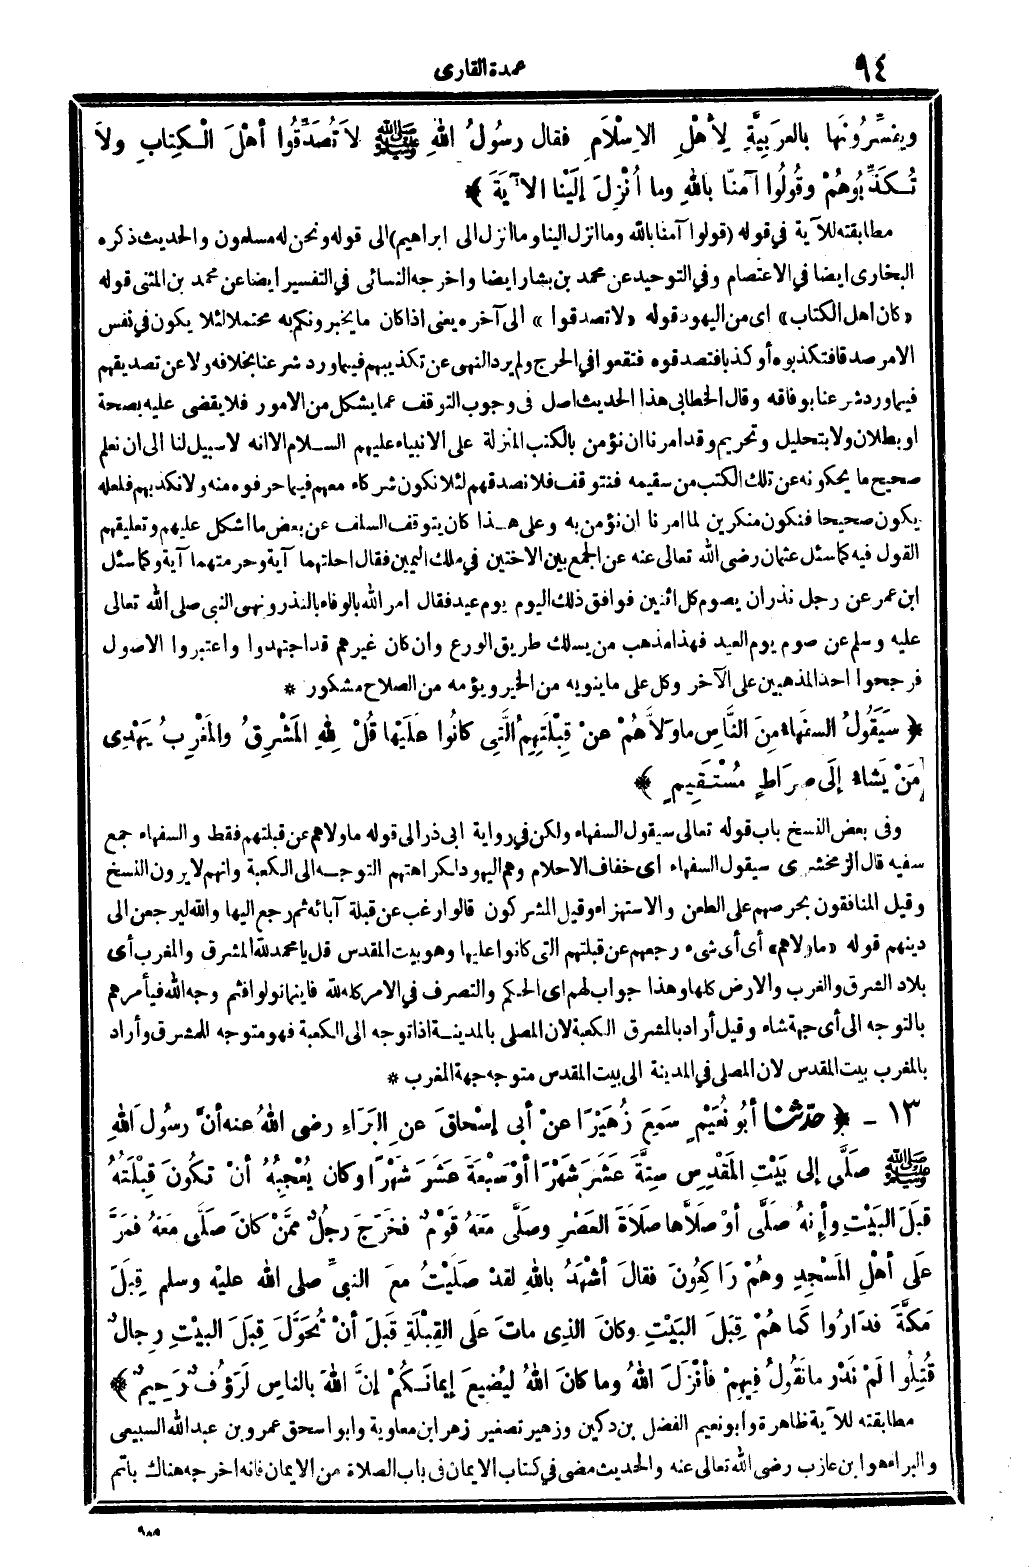 ٩٤
عمدة القارى
ويفسرونها بالعربية لأهل الإسلام فقال رسول الله ﷺ لا تصدقوا أهل الكتاب ولا
تكذبوهم وقولوا آمنا بالله وما أنزل إلينا الآية ﴾
مطابقته للآية في قوله (قولوا آمنا بالله وما انزل الينا وما انزل الى ابراهيم) الى قوله ونحن له مسلمون والحديث ذكره
البخارى ايضا في الاعتصام وفي التوحيد عن محمد بن بشار ايضا واخرجه النسائى في التفسير ايضا عن محمد بن المثنى قوله
«كان اهل الكتاب» اى من اليهود قوله «لا تصدقوا» الى آخره يعنى اذا كان ما يخبرونكم به محتملا لئلا يكون في نفس
الامر صدقا فتكذبوه أو كذبا فتصدقوه فتقعوا في الحرج ولم يرد النهى عن تكذيبهم فيما ورد شرعنا بخلافه ولا عن تصديقهم
فيما ورد شرعنا بوفاقه وقال الخطابى هذا الحديث اصل فى وجوب التوقف عما يشكل من الامور فلا يقضى عليه بصحة
او بطلان ولا بتحليل وتحريم وقد امرنا ان نؤمن بالكتب المنزلة على الانبياء عليهم السلام الا انه لا سبيل لنا الى ان نعلم
صحيح ما يحكونه عن تلك الكتب من سقيمه فنتوقف فلا نصدقهم لئلا نكون شركاء معهم فيما حرفوه منه ولا نكذبهم فلعله
يكون صحيحا فنكون منكرين لما امرنا ان نؤمن به وعلى هذا كان يتوقف السلف عن بعض ما اشكل عليهم وتعليقهم
القول فيه كما سئل عثمان رضى الله تعالى عنه عن الجمع بين الاختين في ملك اليمين فقال احلتهما آية وحرمتهما آية وكما سئل
ابن عمر عن رجل نذر ان يصوم كل اثنين فوافق ذلك اليوم يوم عيد فقال امر الله بالوفاء بالنذر ونهى النبى صلى الله تعالى
عليه وسلم عن صوم يوم العيد فهذا مذهب من يسلك طريق الورع وان كان غيرهم قد اجتهدوا واعتبروا الاصول
فرجحوا احد المذهبين على الآخر وكل على ما ينويه من الخير ويؤمه من الصلاح مشكور *
﴿ سيقول السفهاء من الناس ما ولاهم عن قبلتهم التى كانوا عليها قل لله المشرق والمغرب يهدى
من يشاء إلى صراط مستقيم ﴾
وفى بعض النسخ باب قوله تعالى سيقول السفهاء ولكن في رواية ابى ذر الى قوله ما ولاهم عن قبلتهم فقط والسفهاء جمع
سفيه قال الزمخشرى سيقول السفهاء اى خفاف الاحلام وهم اليهود لكراهتهم التوجه الى الكعبة وانهم لا يرون النسخ
وقيل المنافقون بحرصهم على الطعن والاستهزاء وقيل المشركون قالوا رغب عن قبلة آبائه ثم رجع اليها والله ليرجعن الى
دينهم قوله «ما ولاهم» أى أى شىء رجعهم عن قبلتهم التى كانوا عليها وهو بيت المقدس قل يا محمد لله المشرق والمغرب أى
بلاد الشرق والغرب والارض كلها وهذا جواب لهم اى الحكم والتصرف في الامر كله لله فاينما تولوا فثم وجه الله فيأمرهم
بالتوجه الى أى جهة شاء وقيل أراد بالمشرق الكعبة لان المصلى بالمدينة اذا توجه الى الكعبة فهو متوجه للمشرق وأراد
بالمغرب بيت المقدس لان المصلى في المدينة الى بيت المقدس متوجه جهة المغرب *
١٣ - ﴿ حدثنا أبو نعيم سمع زهيرا عن أبى إسحاق عن البراء رضى الله عنه أن رسول الله
ﷺ صلى إلى بيت المقدس ستة عشر شهرا أو سبعة عشر شهرا وكان يعجبه أن تكون قبلته
قبل البيت وأنه صلى أو صلاها صلاة العصر وصلى معه قوم فخرج رجل ممن كان صلى معه فمر
على أهل المسجد وهم راكعون فقال أشهد بالله لقد صليت مع النبي صلى الله عليه وسلم قبل
مكة فداروا كما هم قبل البيت وكان الذى مات على القبلة قبل أن تحول قبل البيت رجال
قتلوا لم ندر ما نقول فيهم فأنزل الله وما كان الله ليضيع إيمانكم إن الله بالناس لرؤف رحيم ﴾
مطابقته للآية ظاهرة وابو نعيم الفضل بن دكين وزهير تصغير زهر ابن معاوية وابو اسحق عمرو بن عبدالله السبيعى
والبراء هو ابن عازب رضى الله تعالى عنه والحديث مضى في كتاب الايمان فى باب الصلاة من الايمان فانه اخرجه هناك باتم